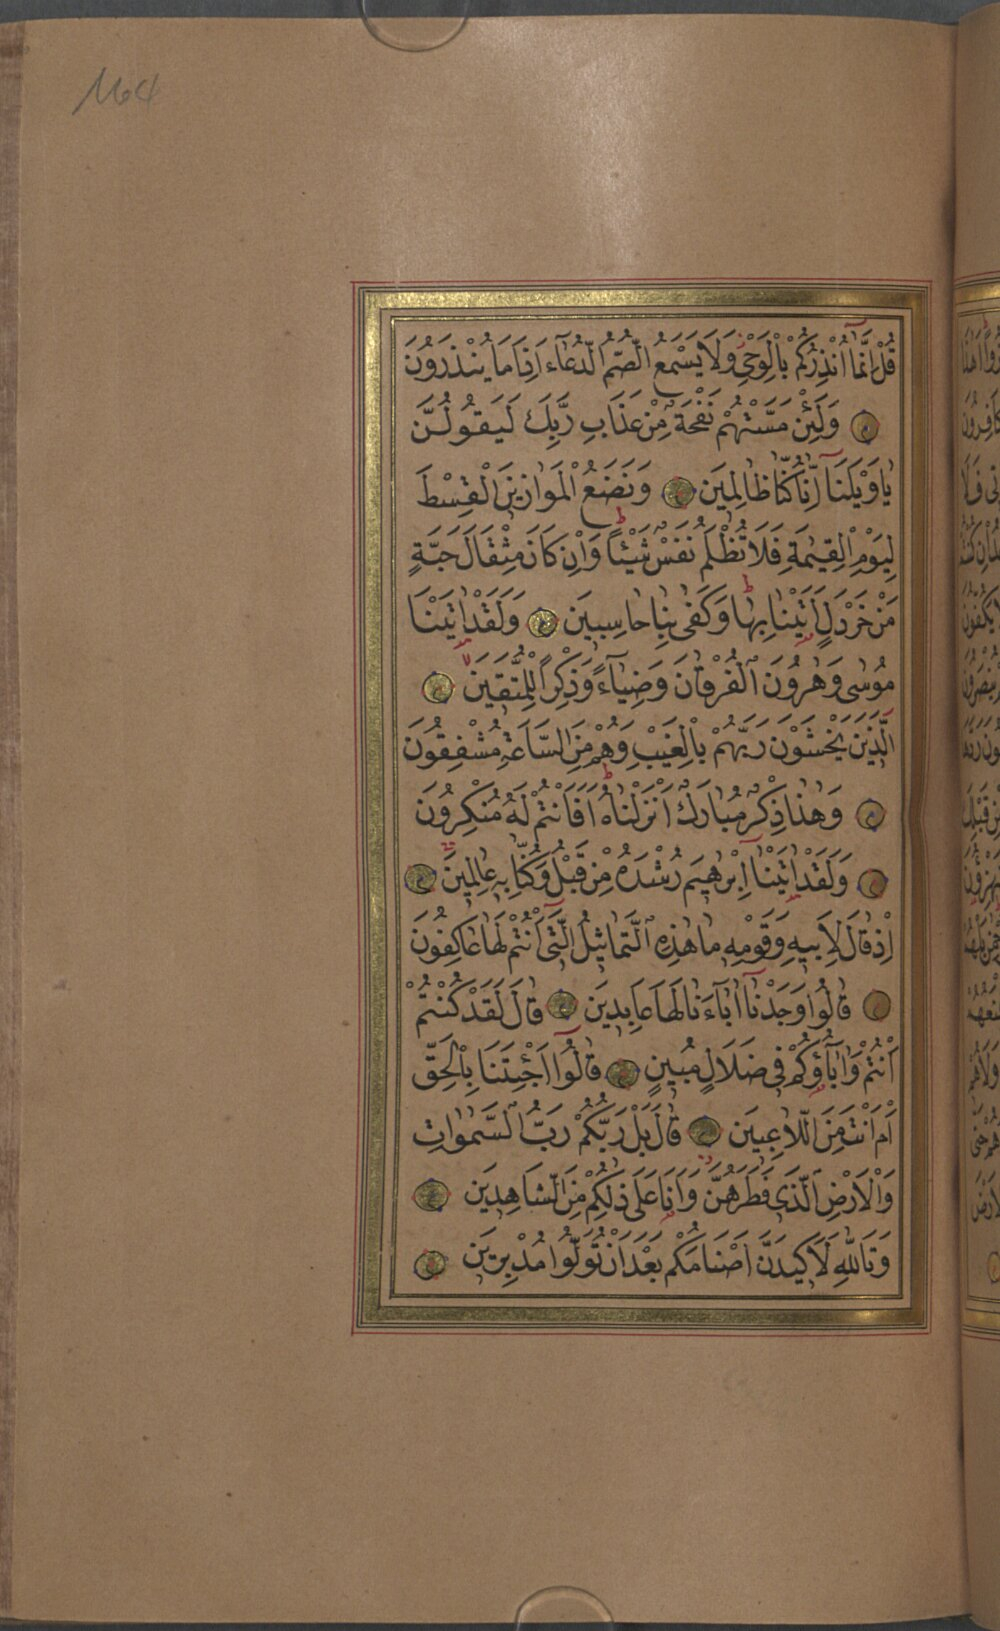 164
قُلْ اِنَّمَٓا اُنْذِرُكُمْ بِالْوَحْيِ وَلَا يَسْمَعُ الصُّمُّ الدُّعَٓاءَ اِذَا مَا يُنْذَرُونَ
وَلَئِنْ مَسَّتْهُمْ نَفْحَةٌ مِنْ عَذَابِ رَبِّكَ لَيَقُولُنَّ
يَاوَيْلَنَٓا اِنَّا كُنَّا ظَالِمِينَ وَنَضَعُ الْمَوَازِينَ الْقِسْطَ
لِيَوْمِ الْقِيٰمَةِ فَلَا تُظْلَمُ نَفْسٌ شَيْئًا وَاِنْ كَانَ مِثْقَالَ حَبَّةٍ
مِنْ خَرْدَلٍ اَتَيْنَا بِهَا وَكَفٰى بِنَا حَاسِبِينَ وَلَقَدْ اٰتَيْنَا
مُوسٰى وَهٰرُونَ الْفُرْقَانَ وَضِيَٓاءً وَذِكْرًا لِلْمُتَّقِينَ
الَّذِينَ يَخْشَوْنَ رَبَّهُمْ بِالْغَيْبِ وَهُمْ مِنَ السَّاعَةِ مُشْفِقُونَ
وَهٰذَا ذِكْرٌ مُبَارَكٌ اَنْزَلْنَاهُ اَفَاَنْتُمْ لَهُ مُنْكِرُونَ
وَلَقَدْ اٰتَيْنَٓا اِبْرٰهِيمَ رُشْدَهُ مِنْ قَبْلُ وَكُنَّا بِهِ عَالِمِينَ
اِذْ قَالَ لِاَبِيهِ وَقَوْمِهِ مَا هٰذِهِ التَّمَاثِيلُ الَّتِٓي اَنْتُمْ لَهَا عَاكِفُونَ
قَالُوا وَجَدْنَٓا اٰبَٓاءَنَا لَهَا عَابِدِينَ قَالَ لَقَدْ كُنْتُمْ
اَنْتُمْ وَاٰبَٓاؤُكُمْ فِي ضَلَالٍ مُبِينٍ قَالُٓوا اَجِئْتَنَا بِالْحَقِّ
اَمْ اَنْتَ مِنَ اللَّاعِبِينَ قَالَ بَلْ رَبُّكُمْ رَبُّ السَّمٰوَاتِ
وَالْاَرْضِ الَّذِي فَطَرَهُنَّ وَاَنَا عَلٰى ذٰلِكُمْ مِنَ الشَّاهِدِينَ
وَتَاللّٰهِ لَاَكِيدَنَّ اَصْنَامَكُمْ بَعْدَ اَنْ تُوَلُّوا مُدْبِرِينَ